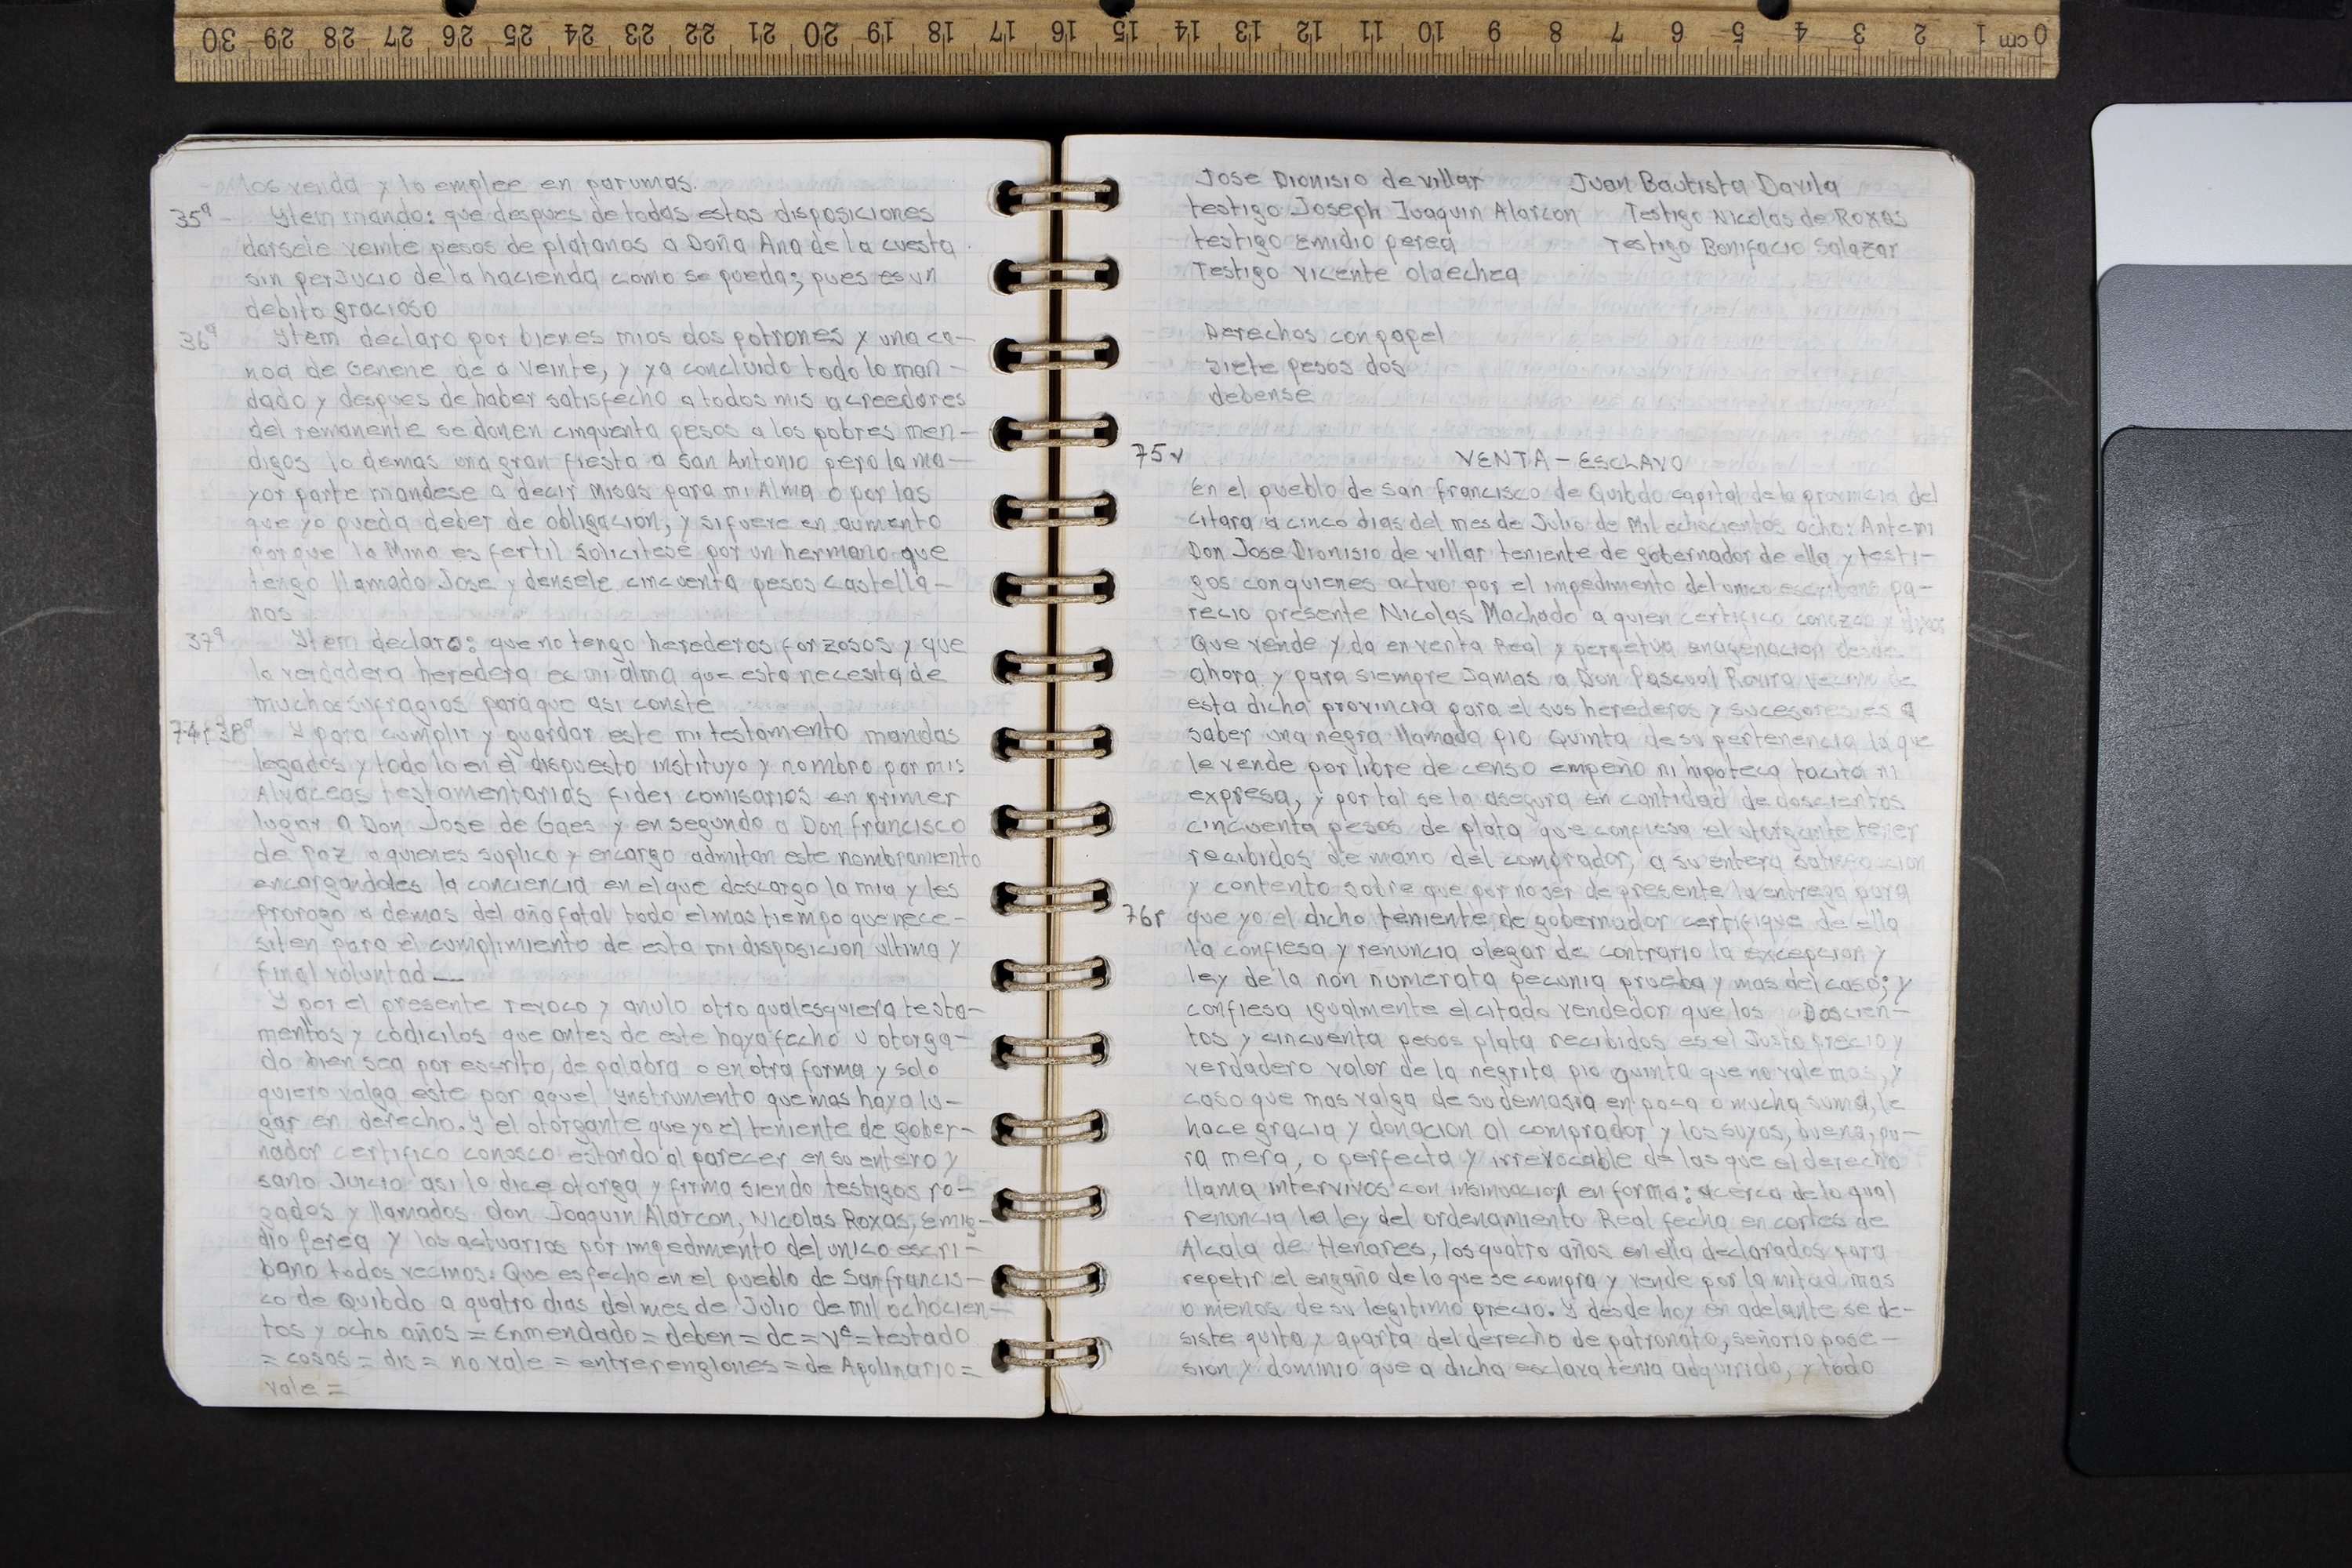 30 29 28 27 26 25 24 23 22 21 20 19 18 17 16 15 14 13 12 11 10 9 8 7 6 5 4 3 2 1 cm 0
los venda y lo emplee en parumas.
35ª Ytem mando: que despues de todas estas disposiciones
dorsele veinte pesos de platanos a Doña Ana de la cuesta
sin perjucio de la hacienda como se pueda; pues es un
debito gracioso
36ª Ytem declaro por bienes mios dos potrones y una ca-
noa de Genene de a veinte, y ya concluido todo lo man-
dado y despues de haber satisfecho a todos mis acreedores
del remanente se donen cinquenta pesos a los pobres men-
digos lo demas una gran fiesta a San Antonio pero la ma-
yor parte mandese a decir Misas para mi Alma o por las
que yo pueda deber de obligacion, y si fuere en aumento
porque la Mina es fertil solicitese por un hermano que
tengo llamado Jose y densele cincuenta pesos castella-
nos
37ª Ytem declaro: que no tengo herederos forzosos y que
la verdadera heredera es mi alma que esta necesita de
muchos sufragios para que asi conste
74r 38ª Y para cumplir y guardar este mi testamento mandas
legados y todo lo en el dispuesto instituyo y nombro por mis
Alvaceas testamentarias fidei comisarios en primer
lugar a Don Jose de Gaes y en segundo a Don francisco
de Paz a quienes suplico y encargo admitan este nombramiento
encargandoles la conciencia en el que descargo la mia y les
prorogo a demas del año fatal todo el mas tiempo que nece-
siten para el cumplimiento de esta mi disposicion ultima y
final voluntad —
Y por el presente revoco y anulo otro qualesquiera testa-
mentos y codicilos que antes de este haya fecho u otorga-
do bien sea por escrito, de palabra o en otra forma y solo
quiero valga este por aquel Ynstrumento que mas haya lu-
gar en derecho. Y el otorgante que yo el teniente de gober-
nador certifico conosco estando al parecer en su entero y
sano Juicio asi lo dice otorga y firma siendo testigos ro-
gados y llamados don Joaquin Alarcon, Nicolas Roxas, Emig-
dio Perea y los actuarios por impedimento del unico escri-
bano todos vecinos. Que es fecho en el pueblo de San francis-
co de Quibdo a quatro dias del mes de Julio de mil ochocien-
tos y ocho años = Enmendado = deben = de = vᵉ = testado
= cosas = dis = no vale = entrerenglones = de Apolinario =
vale =
Jose Dionisio de villar Juan Bautista Davila
testigo Joseph Juaquin Alarcon Testigo Nicolas de Roxas
testigo Emidio perea Testigo Bonifacio Salazar
Testigo vicente olaechea
Derechos con papel
siete pesos dos
debense
75v VENTA - ESCLAVO
En el pueblo de San francisco de Quibdo capital de la provincia del
citara a cinco dias del mes de Julio de Mil echocientos ocho: Ante mi
Don Jose Dionisio de villar teniente de gobernador de ella y testi-
gos con quienes actuo por el impedimento del unico escribano pa-
recio presente Nicolas Machado a quien certifico conozco y dixo:
Que vende y da en venta Real y perpetua enagenacion desde
ahora y para siempre Jamas a Don Pascual Rovira vecino de
esta dicha provincia para el sus herederos y sucesores es a
saber una negra llamada pio Quinta de su pertenencia la que
le vende por libre de censo empeño ni hipoteca tacita ni
expresa, y por tal se la asegura en cantidad de doscientos
cincuenta pesos de plata que confiesa el otorgante tener
recibidos de mano del comprador, a su entera satisfaccion
y contento sobre que por no ser de presente la entrega para
76r que yo el dicho teniente de gobernador certifique de ella
la confiesa y renuncia alegar de contrario la excepcion y
ley de la non numerata pecunia prueba y mas del caso; y
confiesa igualmente el citado vendedor que los Doscien-
tos y cincuenta pesos plata recibidos es el Justo precio y
verdadero valor de la negrita pio quinta que no vale mas, y
caso que mas valga de su demasia en poca o mucha suma, le
hace gracia y donacion al comprador y los suyos, buena, pu-
ra mera, o perfecta y irrevocable de las que el derecho
llama intervivos con insinuacion en forma: acerca de lo qual
renuncia la ley del ordenamiento Real fecha en cortes de
Alcala de Henares, los quatro años en ella declarados para
repetir el engaño de lo que se compra y vende por la mitad mas
o menos de su legitimo precio. Y desde hoy en adelante se de-
siste quita y aparta del derecho de patronato, señorio pose-
sion y dominio que a dicha esclava tenia adquirido, y todo